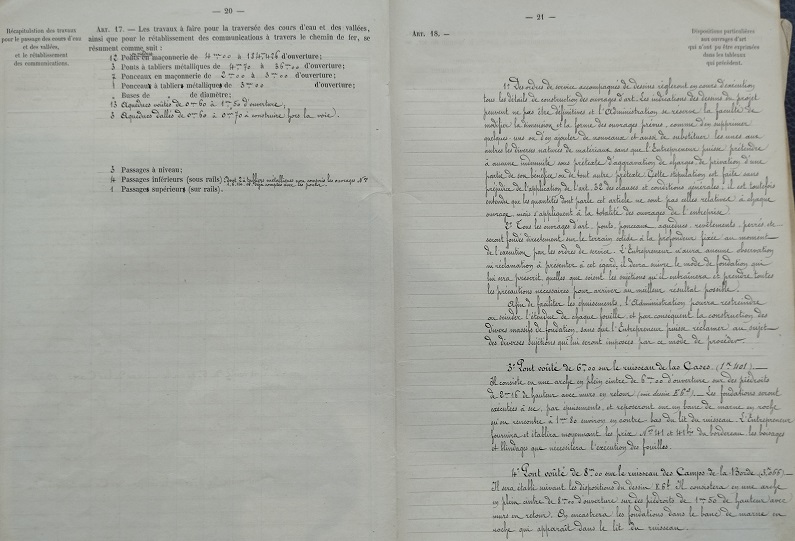 — 20 —
Récapitulation des travaux
pour le passage des cours d'eau
et des vallées,
et le rétablissement
des communications.
Art. 17. — Les travaux à faire pour la traversée des cours d'eau et des vallées,
ainsi que pour le rétablissement des communications à travers le chemin de fer, se
résument comme suit :
12 Ponts en maçonnerie de 4m00 à d'ouverture ;
3 Ponts à tabliers métalliques de 4m70 à 36m00 d'ouverture ;
7 Ponceaux en maçonnerie de 2m00 à 3m00 d'ouverture ;
1 Ponceaux à tabliers métalliques de 3m00 d'ouverture ;
Buses de de diamètre ;
13 Aqueducs voûtés de 0m60 à 1m50 d'ouverture ;
3 Aqueducs dallés de 0m60 à 0m70 à construire sous la voie.
3 Passages à niveau ;
4 Passages inférieurs (sous rails)
1 Passages supérieurs (sur rails).
— 21 —
Art. 18. —
Dispositions particulières
aux ouvrages d'art
qui n'ont pu être exprimées
dans les tableaux
qui précèdent.
1° Des ordres de service accompagnés de dessins règleront en cours d'exécution
tous les détails de construction des ouvrages d'art. Les indications des dessins du projet
peuvent ne pas être définitives et l'Administration se réserve la faculté de
modifier la dimension et la forme des ouvrages prévus, comme d'en supprimer
quelques-uns ou d'en ajouter de nouveaux et aussi de substituer les unes aux
autres les diverses natures de matériaux sans que l'Entrepreneur puisse prétendre
à aucune indemnité sous prétexte d'aggravation de charges, de privation d'une
partie de son bénéfice ou de tout autre prétexte. Cette stipulation est faite sans
préjudice de l'application de l'art. 32 des clauses et conditions générales, il est toutefois
entendu que les quantités dont parle cet article ne sont pas celles relatives à chaque
ouvrage, mais s'appliquent à la totalité des ouvrages de l'entreprise.
2° Tous les ouvrages d'art, ponts, ponceaux, aqueducs, revêtements, perrés etc
seront fondés directement sur le terrain solide à la profondeur fixée au moment
de l'exécution par les ordres de service. L'Entrepreneur n'aura aucune observation
ou réclamation à présenter à cet égard, il devra suivre le mode de fondation qui
lui sera prescrit, quelles que soient les sujétions qu'il entraînera et prendre toutes
les précautions nécessaires pour arriver au meilleur résultat possible.
Afin de faciliter les épuisements, l'Administration pourra restreindre
ou scinder l'étendue de chaque fouille, et par conséquent la construction des
divers massifs de fondation, sans que l'Entrepreneur puisse réclamer au sujet
des diverses sujétions qui lui seront imposées par ce mode de procéder.
3° Pont voûté de 6m00 sur le ruisseau de las Cases
Il consiste en une arche en plein cintre de 6m00 d'ouverture sur des piédroits
à 2m16 de hauteur avec murs en retour — Les fondations seront
exécutées à sec, par épuisements, et reposeront sur un banc de marne en roche
qu'on rencontre à 1m80 environ en contre-bas du lit du ruisseau. L'Entrepreneur
fournira et établira moyennant les prix Nos 41 et 41bis du bordereau les boisages
et blindages que nécessitera l'exécution des fouilles.
4° Pont voûté de 8m00 sur le ruisseau des Camps de la Borde
Il sera établi suivant les dispositions du dessin Il consistera en une arche
en plein cintre de 8m00 d'ouverture sur des piédroits de 1m50 de hauteur avec
murs en retour. On encastrera les fondations dans le banc de marne en
roche qui apparaît dans le lit du ruisseau.